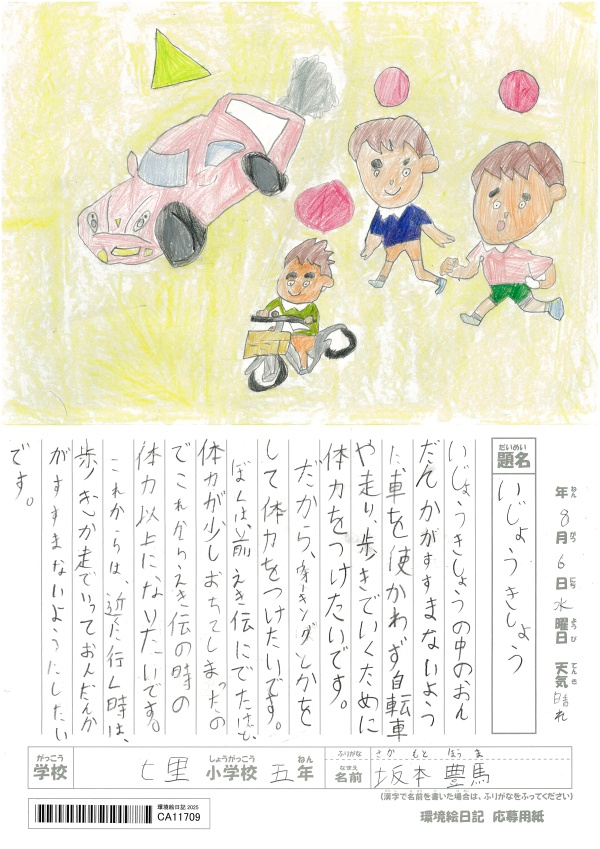 だいめい
題名
いじょうきしょう
年 8月 6日 水曜日 天気 晴れ
ねん がつ にち ようび てんき
いじょうきしょうの中のおん
だんかがすすまないよう
に車を使かわず自転車
や走り、歩きでいくために
体力をつけたいです。
だから、ウォーキングとかを
して体力をつけたいです。
ぼくは、前えき伝にでたけど、
体力が少しおちてしまったの
でこれからえき伝の時の
体力以上になりたいです。
これからは、近くに行く時は、
歩きか走ていっておんだんか
がすすまないようにしたい
です。
がっこう しょうがっこう ねん
学校 七里 小学校 五年
ふりがな さか もと ほう ま
なまえ
名前 坂本 豊馬
(漢字で名前を書いた場合は、ふりがなをふってください)
環境絵日記 応募用紙
環境絵日記 2025
CA11709